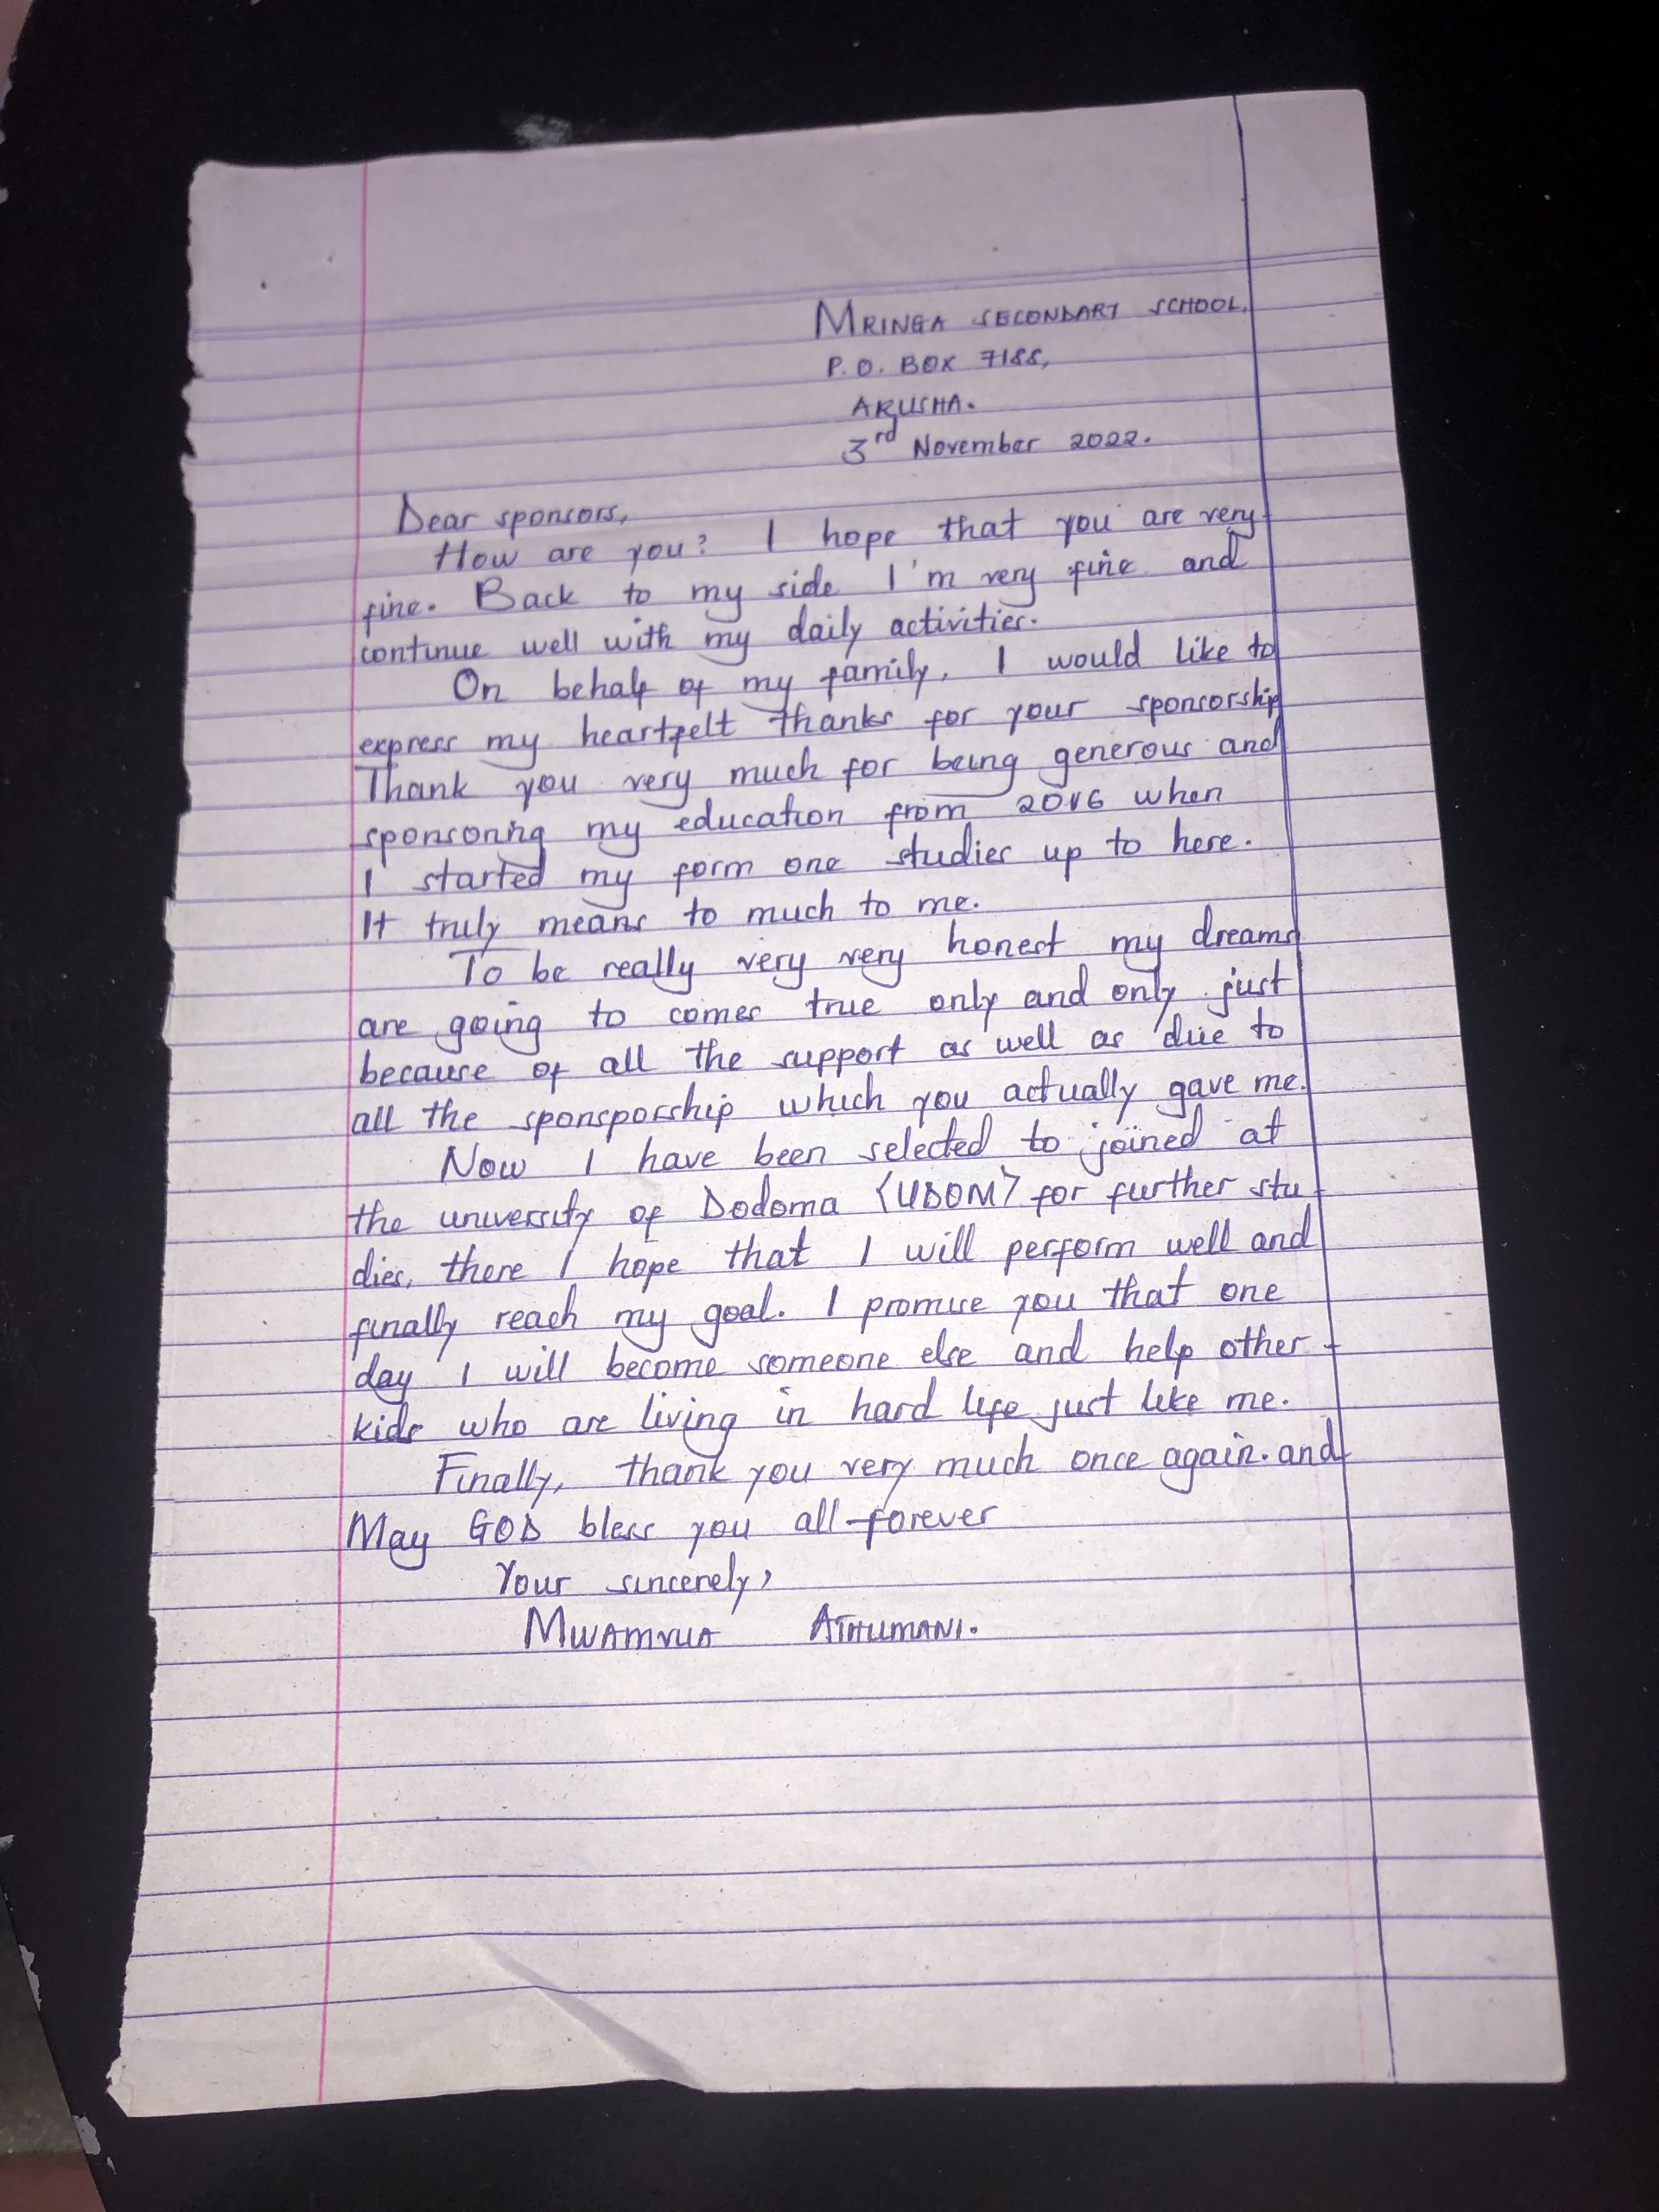 MRINGA SECONDARY SCHOOL,
P.O. BOX 7188,
ARUSHA.
3rd November 2022.
Dear sponsors,
How are you? I hope that you are very
fine. Back to my side I'm very fine and
continue well with my daily activities.
On behalf of my family, I would like to
express my heartfelt thanks for your sponsorship
Thank you very much for being generous and
sponsoring my education from 2016 when
I started my form one studies up to here.
It truly means to much to me.
To be really very very honest my dreams
are going to comes true only and only just
because of all the support as well as due to
all the sponsporship which you actually gave me.
Now I have been selected to joined at
the university of Dodoma (UDOM) for further stu-
dies, there I hope that I will perform well and
finally reach my goal. I promise you that one
day I will become someone else and help other
kids who are living in hard life just like me.
Finally, thank you very much once again. and
May GOD bless you all forever
Your sincerely,
MWAMVUA ATHUMANI.